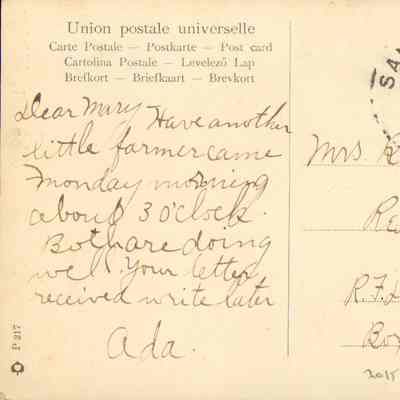 Union postale universelle
Carte Postale — Postkarte — Post card
Cartolina Postale — Levelező Lap
Brefkort — Briefkaart — Brevkort
Dear Mary Have another
little farmer came
Monday morning
about 3 o'clock.
Both are doing
well. Your letter
received write later
Ada.
P 217
SA
Mrs
R.F.D
Box
2015